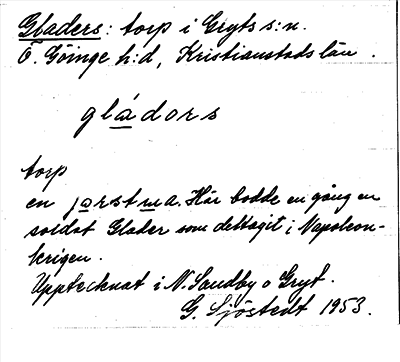 Gladers: torp i Gryts s:n.
Ö. Göinge h:d, Kristianstads län.
gládors
torp
en jorstua. Här bodde en gång en
soldat Glader som deltagit i Napoleon-
krigen.
Upptecknat i N. Sandby o Gryt.
G. Sjöstedt 1953.